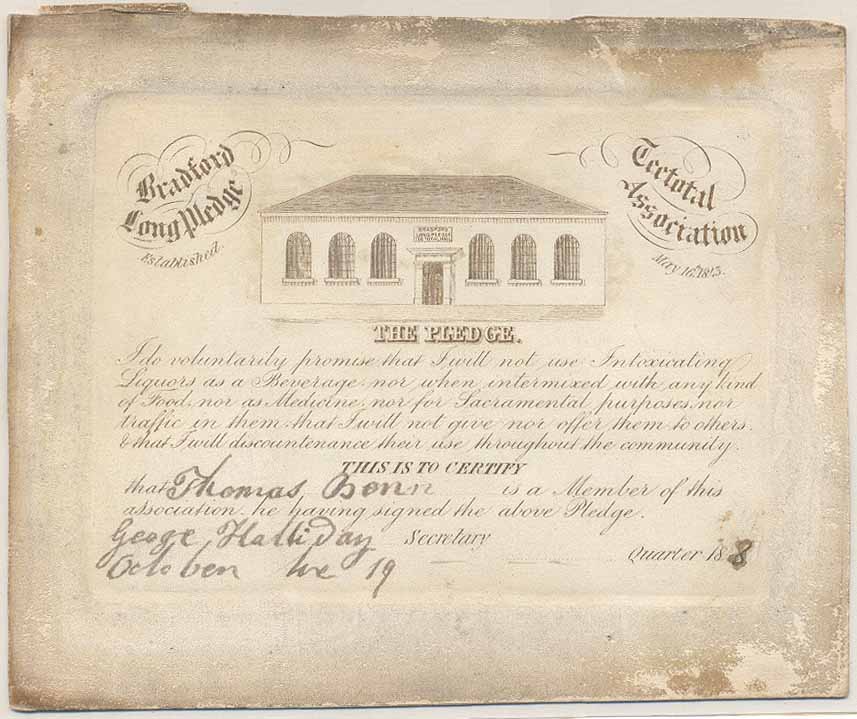 Bradford
Long Pledge
Established
Teetotal
Association
May 16th 1843.
BRADFORD
LONG PLEDGE
TEETOTAL HALL
THE PLEDGE.
I do voluntarily promise that I will not use Intoxicating
Liquors as a Beverage, nor when intermixed with any kind
of Food, nor as Medicine, nor for Sacramental purposes, nor
traffic in them that I will not give nor offer them to others.
& that I will discountenance their use throughout the community.
THIS IS TO CERTIFY
that Thomas Benn is a Member of this
association, he having signed the above Pledge.
Geoge, Halliday Secretary
Octoben the 19 Quarter 18